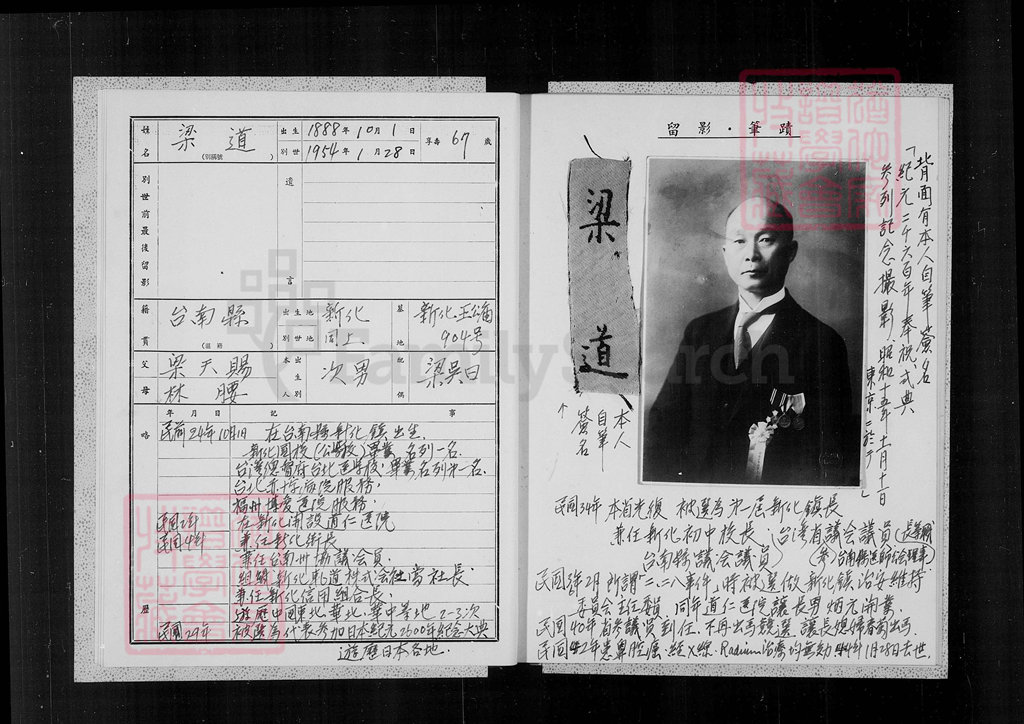 姓名 梁 道 (別稱號 )
出生 1888年10月1日
別世 1954年1月28日
享壽 67 歲
別世前最後留影
遺言
籍貫 台南縣 (省籍 )
出生地 新化
別世地 同上
墓地 新化王公廟904号
父 梁天賜
母 林 腰
本人出生別 次男
配偶 梁吳日
略歷
年 月 日 記 事
民前24年10月1日 在台南縣新化鎮出生.
新化國校(公學校)畢業,名列一名.
台灣總督府台北醫學校,畢業,名列第一名.
台北赤十字病院服務.
福州博愛醫院服務.
民國 年 在新化開設道仁医院
民國 年 兼任新化街長.
兼任台南州協議会員.
組織新化軌道株式会社當社長.
兼任新化信用組合長.
遊歷中國東北、華北、華中等地 2-3次
民國29年 被選為代表參加日本紀元2600年紀念大典
遊歷日本各地.
留影・筆蹟
梁 道
↑本人自筆簽名
背面有本人自筆簽名
「紀元二千六百年奉祝式典
参列記念撮影、昭和十五年十一月十日
東京ニ於テ」
民國34年 本省光復 被選為第一屆新化鎮長
兼任新化初中校長;台灣省議会議員(
台南縣議会議員)
民國36年2月 所謂"二.二八事件"時被選做新化鎮治安維持
委員会主任委員 同年道仁医院讓長男炳元開業.
民國40年省參議員到任.不再出馬競選 讓長媳 出馬.
民國42年患鼻腔癌.經X線.Radium治療均無効 44年1月28日去世.
FamilySearch